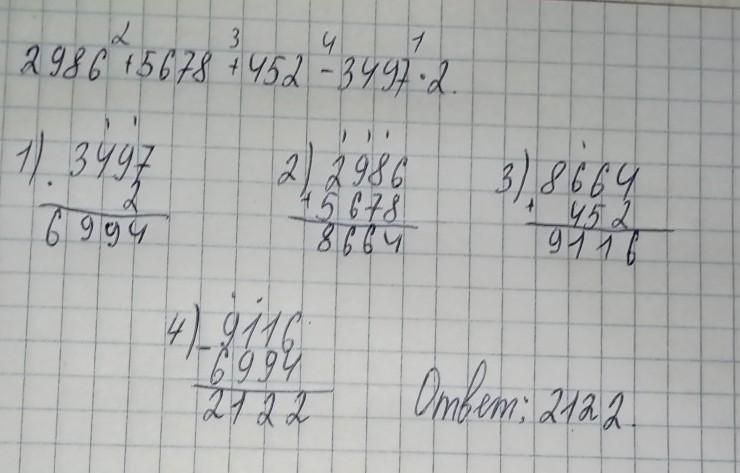 2 3 4 1
2986 + 5678 + 452 - 3497 · 2.
1) 3497 · 2 6994
2) 2986 + 5678 8664
3) 8664 + 452 9116
4) - 9116 6994 2122
Ответ: 2122.